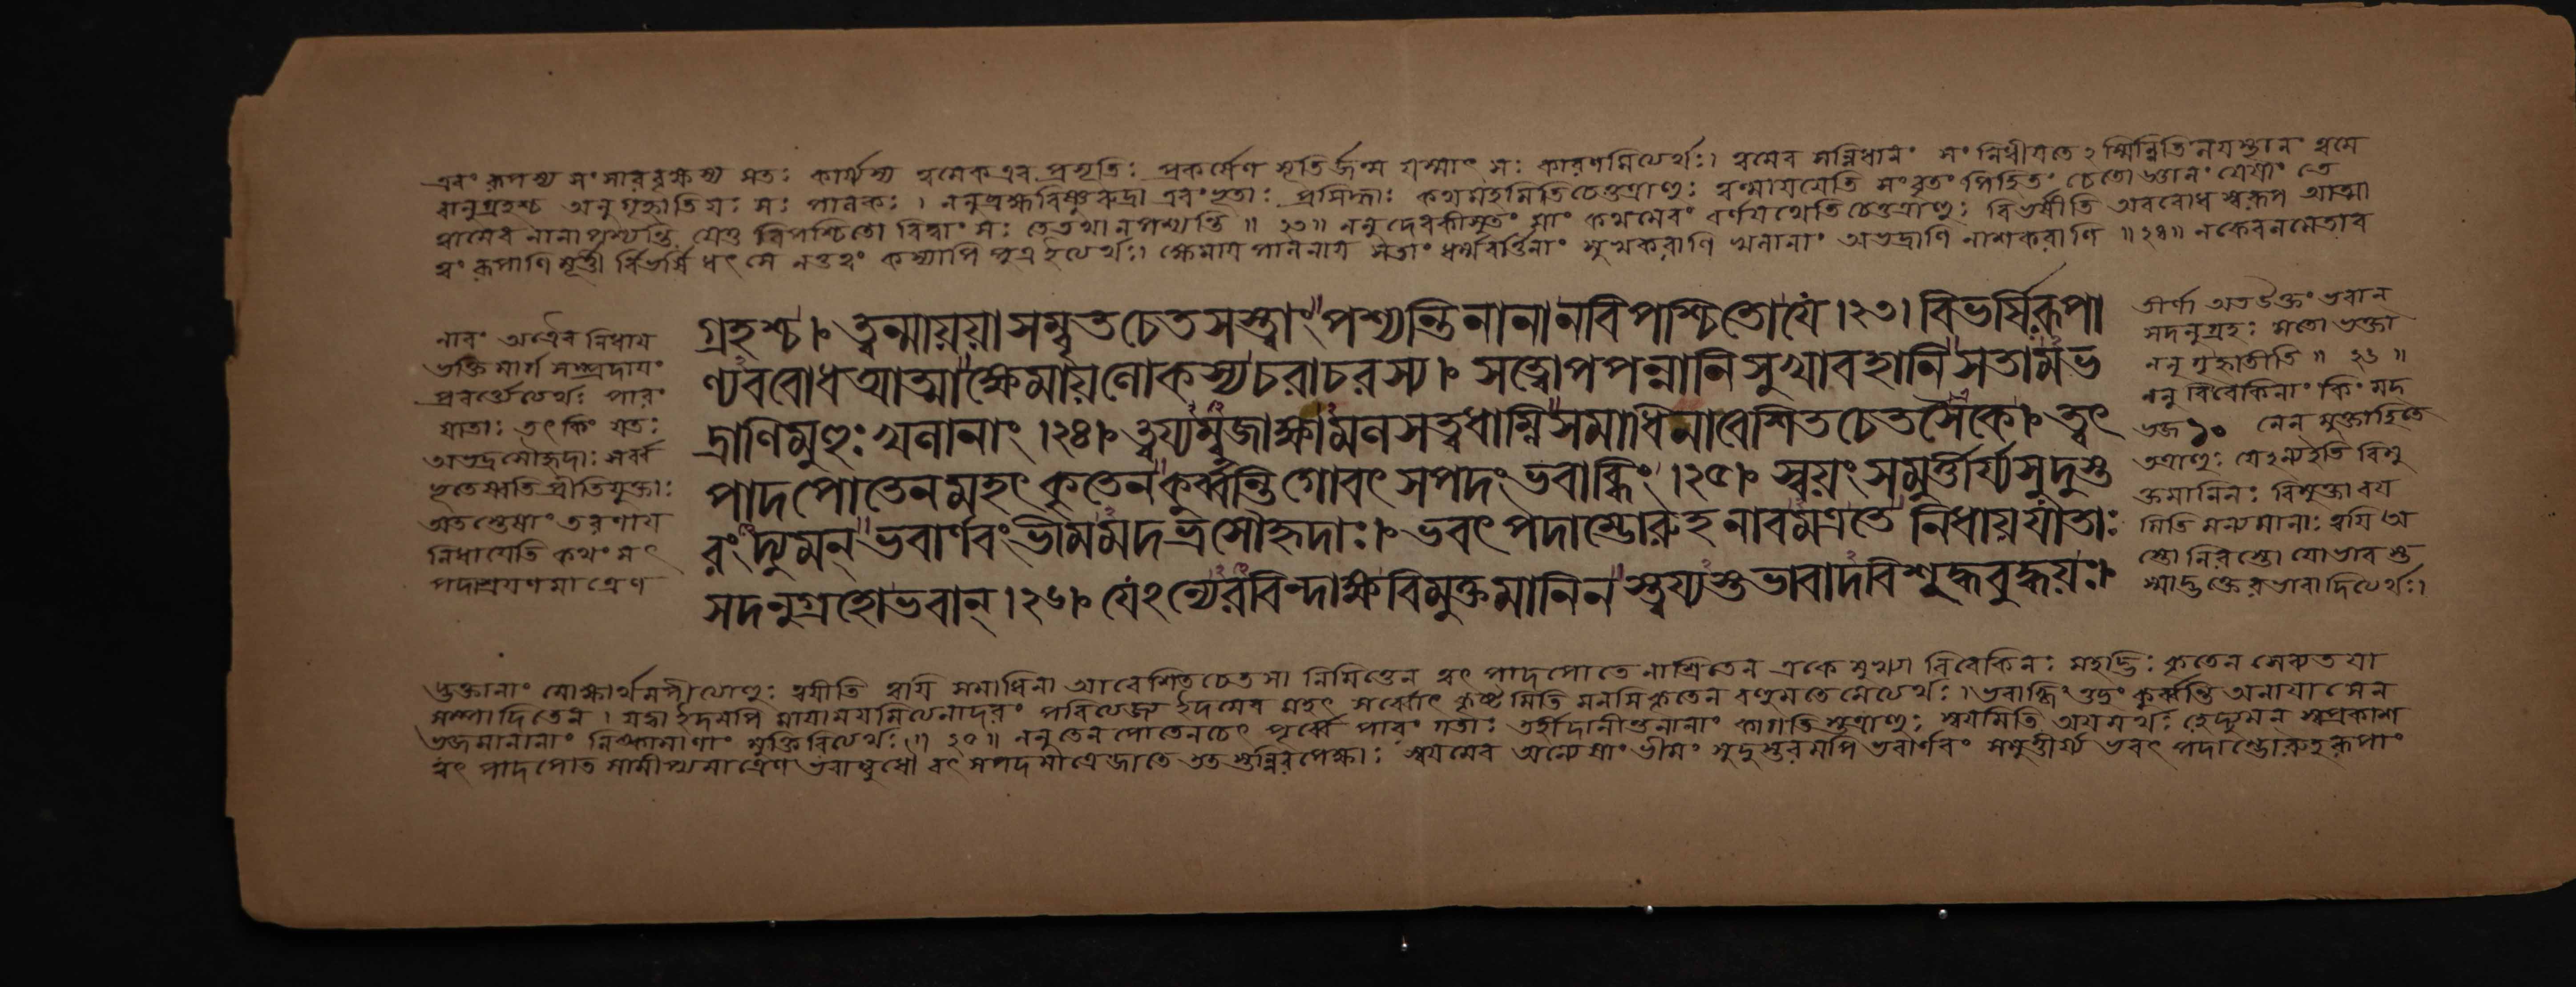 এবং রূপস্য সংসারবৃক্ষস্য সতঃ কার্য্যস্য ত্বমেক এব প্রসূতিঃ প্রকর্ষেণ সূতির্জন্ম যস্মাৎ সঃ কারণমিত্যর্থঃ। ত্বমেব সন্নিধানং সংনিধীয়তেঽস্মিন্নিতি লয়স্থানং ত্বমে
বানুগ্রহশ্চ অনুগৃহ্ণাতি যঃ সঃ পালকঃ। ননু ব্রহ্মবিষ্ণুরুদ্রা এবংভূতাঃ প্রসিদ্ধাঃ কথমহমিতি চেত্তত্রাহুঃ ত্বন্মায়য়েতি সংবৃতং পিহিতং চেতো জ্ঞানং যেষাং তে
ত্বামেব নানা পশ্যন্তি যেতু বিপশ্চিতো বিদ্বাংসঃ তে তথা ন পশ্যন্তি ॥ ২৩ ॥ ননু দেবকীসুতং মাং কথমেবং বর্ণয়থেতি চেত্তত্রাহুঃ বিভর্ষীতি অববোধস্বরূপ আত্মা
ত্বং রূপাণি মূর্ত্তী র্বিভর্ষি ধৎসে নতু ত্বং কস্যাপি পুত্র ইত্যর্থঃ। ক্ষেমায় পালনায় সতাং ধর্ম্মবর্ত্তিনাং সুখকরাণি খলানাং অভদ্রাণি নাশকরাণি ॥ ২৪ ॥ ন কেবলমেতাব
গ্রহশ্চ। ত্বন্মায়য়া সম্বৃতচেতসস্ত্বাং পশ্যন্তি নানা ন বিপশ্চিতো যে।২৩। বিভর্ষি রূপা
ণ্যববোধ আত্মা ক্ষেমায় লোকস্য চরাচরস্য। সত্ত্বোপপন্নানি সুখাবহানি সতামভ
দ্রাণি মুহুঃ খলানাং।২৪। ত্বয্যম্বুজাক্ষামলসত্ত্বধাম্নি সমাধিনাবেশিতচেতসৈকে। ত্বৎ
পাদপোতেন মহৎকৃতেন কুর্ব্বন্তি গোবৎসপদং ভবাব্ধিং।২৫। স্বয়ং সমুর্ত্তীর্য্য সুদুস্ত
রং দ্যুমন্ ভবার্ণবং ভীমমদভ্রসৌহৃদাঃ। ভবৎপদাম্ভোরুহনাবমত্র তে নিধায় যাতাঃ
সদনুগ্রহো ভবান্।২৬। যেঽন্যেরবিন্দাক্ষ বিমুক্তমানিনস্ত্বয্যস্তভাবাদবিশুদ্ধবুদ্ধয়ঃ।
নাবং অত্রৈব নিধায়
ভক্তিমার্গসম্প্রদায়ং
প্রবর্ত্ত্যেত্যর্থঃ পারং
যাতাঃ তৎ কিং যতঃ
অভদ্রসৌহৃদাঃ সর্ব্ব
ভূতেষ্বতিপ্রীতিযুক্তাঃ
অতস্তেষাং তরণায়
নিধায়েতি কথং সৎ
পদাশ্রয়ণমাত্রেণ
তীর্ণা অত উক্তং ভবান্
সদনুগ্রহঃ সতো ভক্তা
ননুগৃহ্ণাতীতি ॥ ২৬ ॥
ননু বিবেকিনাং কিং মদ্
ভজ ১০ নেন মুক্তাহিতে
তত্রাহুঃ যেঽন্য ইতি বিমু
ক্তমানিনঃ বিমুক্তা বয়
মিতি মন্যমানাঃ ত্বয়ি অ
স্তো নিরস্তো যো ভাবস্ত
স্মাদ্ভক্তেরভাবাদিত্যর্থঃ।
দ্ভক্তানাং মোক্ষার্থমপীত্যাহুঃ ত্বয়ীতি ত্বয়ি সমাধিনা আবেশিতচেতসা নিমিত্তেন ত্বৎপাদপোতেনাশ্রিতেন একে মুখ্যা বিবেকিনঃ মহদ্ভিঃ কৃতেন সেব্যতয়া
সম্পাদিতেন। যদ্বা ইদমপি মায়াময়মিত্যনাদরং পরিত্যজ্য ইদমেব মহৎ সর্ব্বোৎকৃষ্টমিতি মনসি কৃতেন বহুমতেনেত্যর্থঃ। ভবাব্ধিং তুচ্ছং কুর্ব্বন্তি অনায়াসেন
ভজমানানাং নিষ্কামাণাং মুক্তিরিত্যর্থঃ ॥ ২৫ ॥ ননু তেন পোতেন চেৎ পূর্ব্বে পারং গতাঃ তর্হীদানীন্তনানাং কা গতিস্তত্রাহুঃ স্বয়মিতি অয়মর্থঃ হে দ্যুমন্ স্বপ্রকাশ
ত্বৎপাদপোতসামীপ্যমাত্রেণ ভবাম্বুধৌ বৎসপদমাত্রে জাতে ততস্তন্নিরপেক্ষাঃ স্বয়মেব অন্যেষাং ভীমং সুদুস্তরমপি ভবার্ণবং সমুত্তীর্য্য ভবৎপদাম্ভোরুহরূপাং